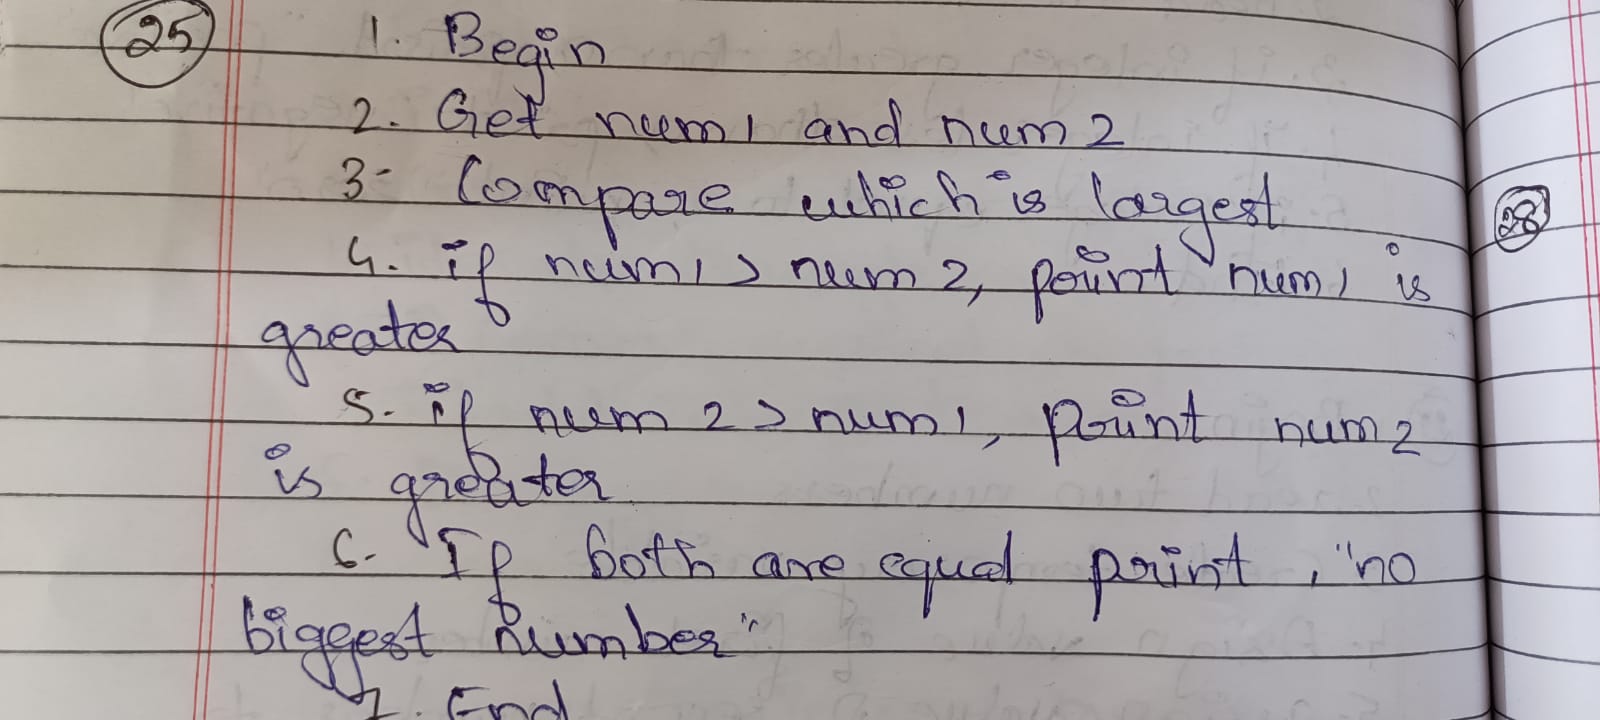 25 1. Begin
2. Get num1 and num2
3- Compare which is largest
4. if num1 > num 2, print num1 is
greater
5. if num 2 > num1, print num2
is greater
6. If both are equal print, "no
biggest number"
7. End
28